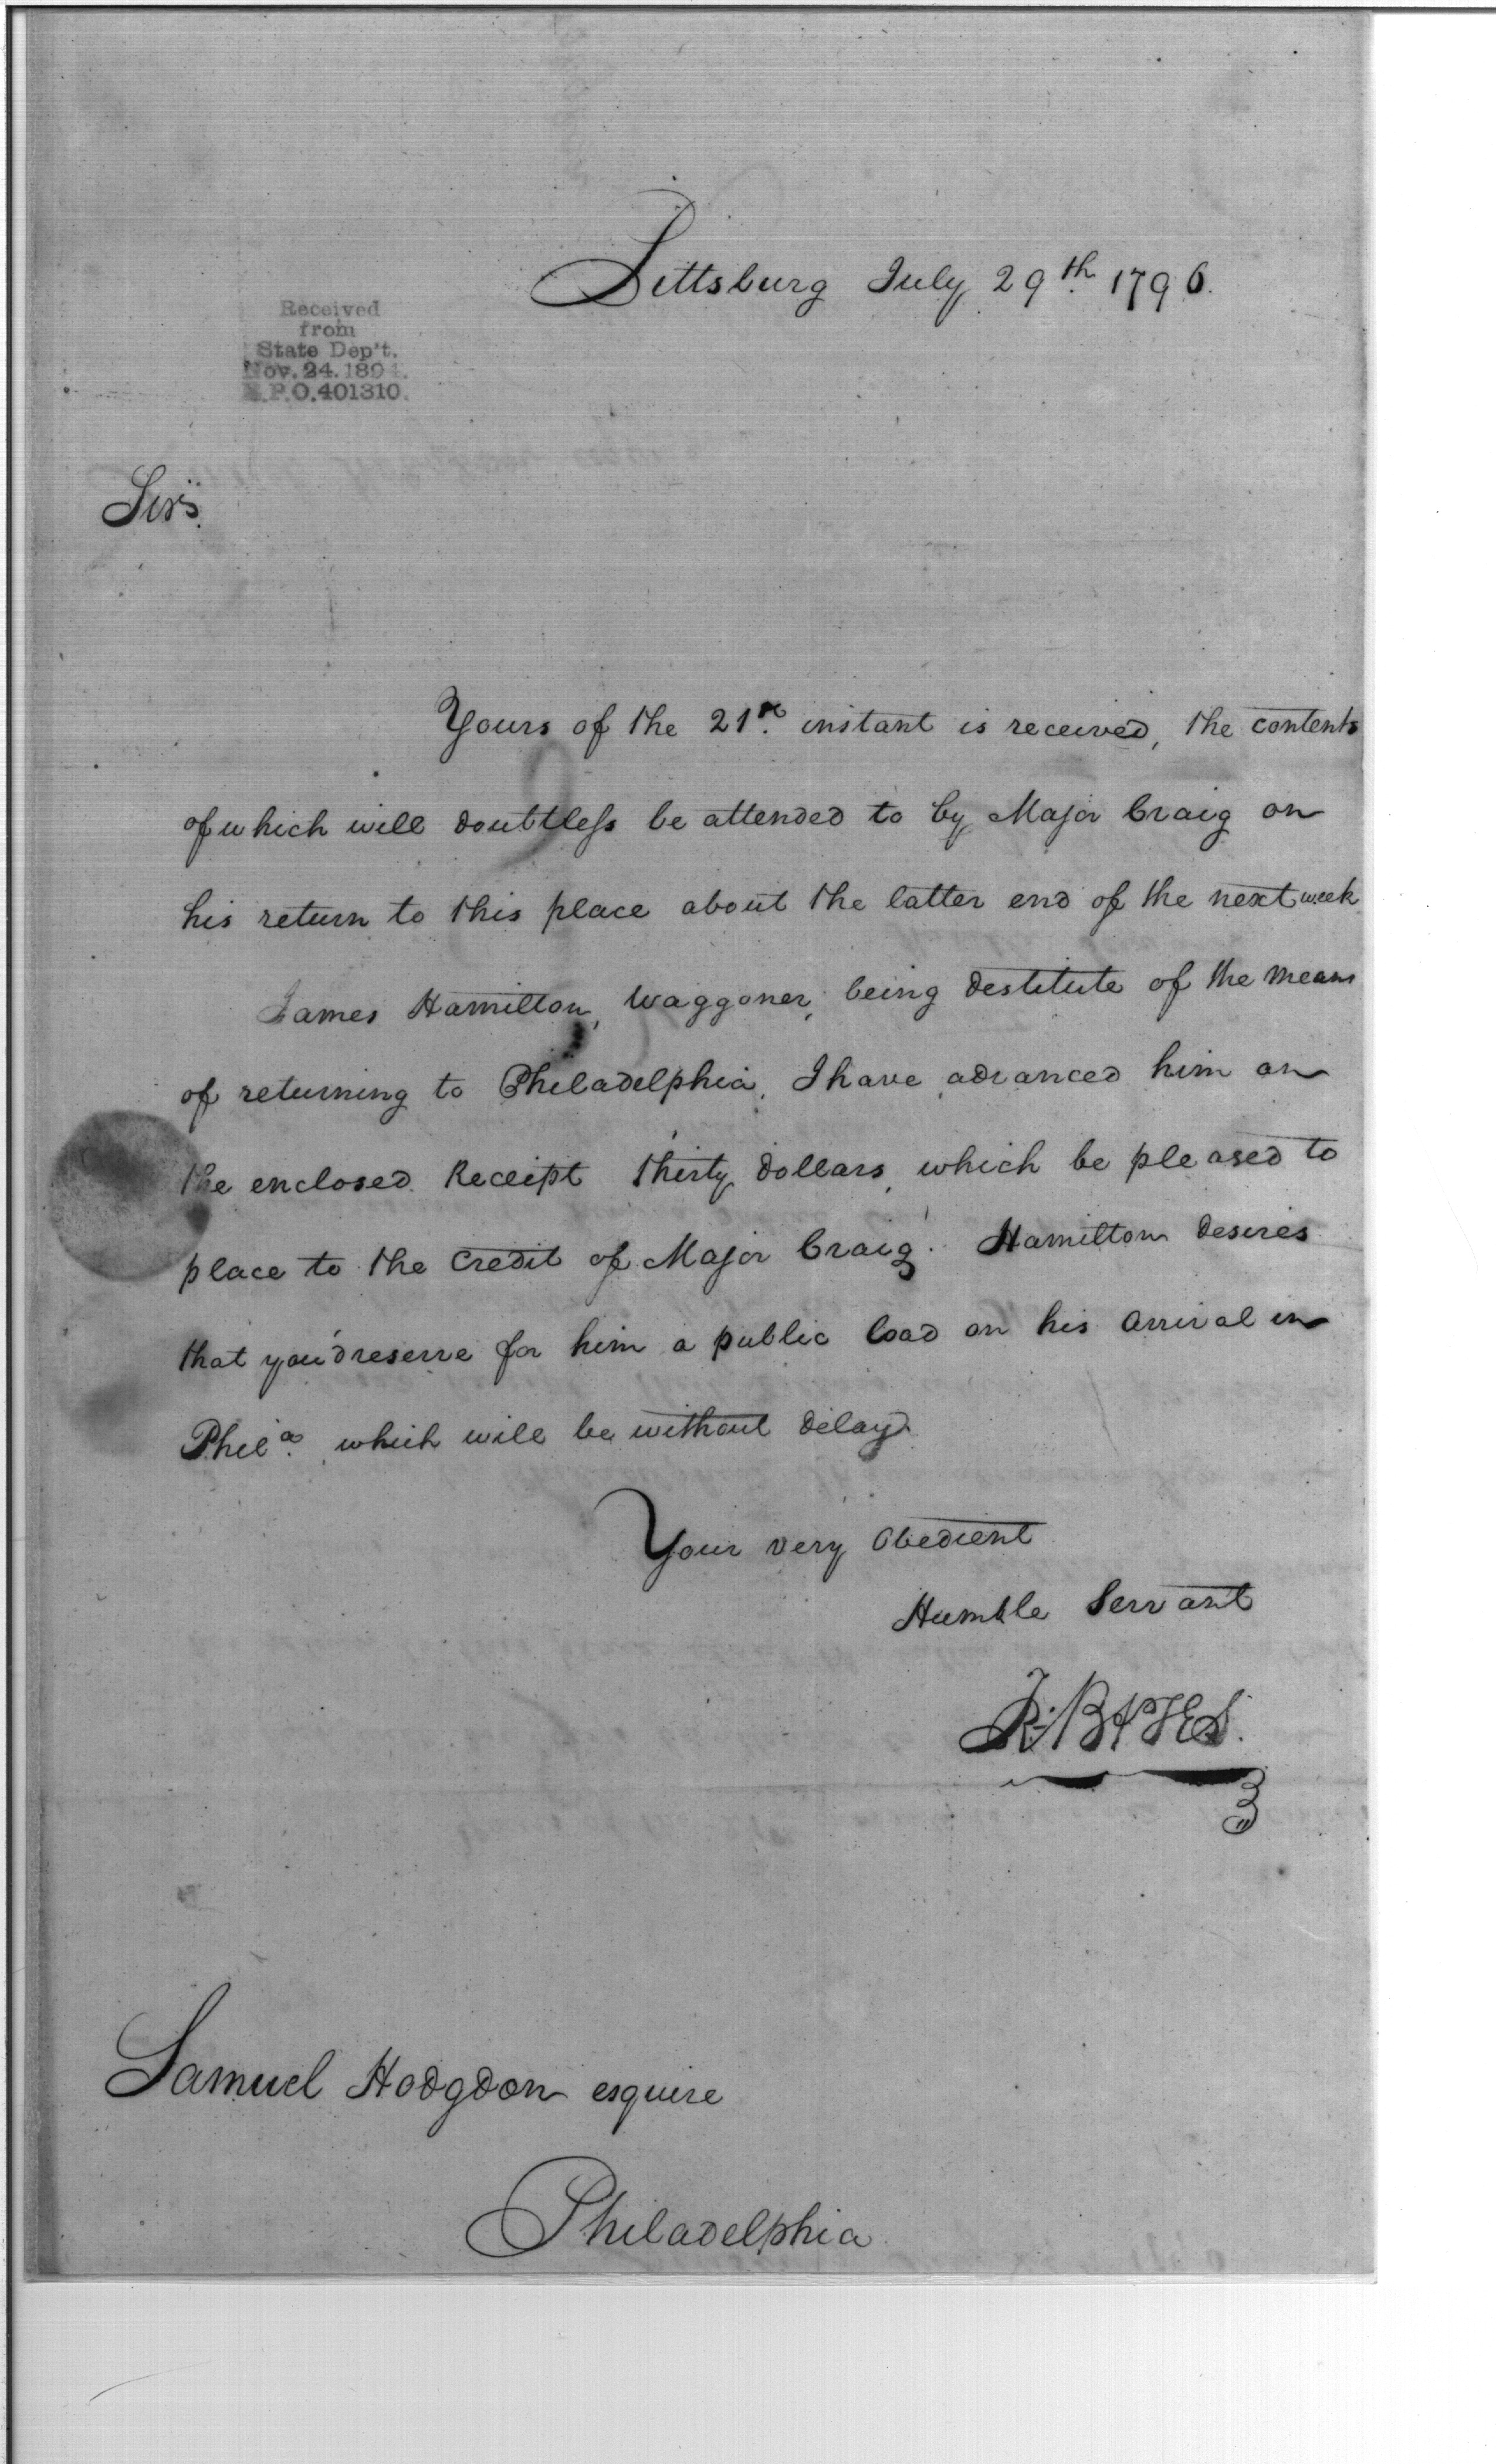 Pittsburg July 29th. 1796.
Received
from
State Dep't.
Nov. 24. 1894.
R.P.O. 401310.
Sir,
Yours of the 21st. instant is received, the contents
of which will doubtless be attended to by Major Craig on
his return to this place about the latter end of the next week
James Hamilton, Waggoner, being destitute of the means
of returning to Philadelphia, I have advanced him on
the enclosed Receipt thirty dollars, which be pleased to
place to the Credit of Major Craig. Hamilton desires
that you'd reserve for him a public load on his arrival in
Phila. which will be without delay.
Your very Obedient
Humble Servant
Samuel Hodgdon esquire
Philadelphia